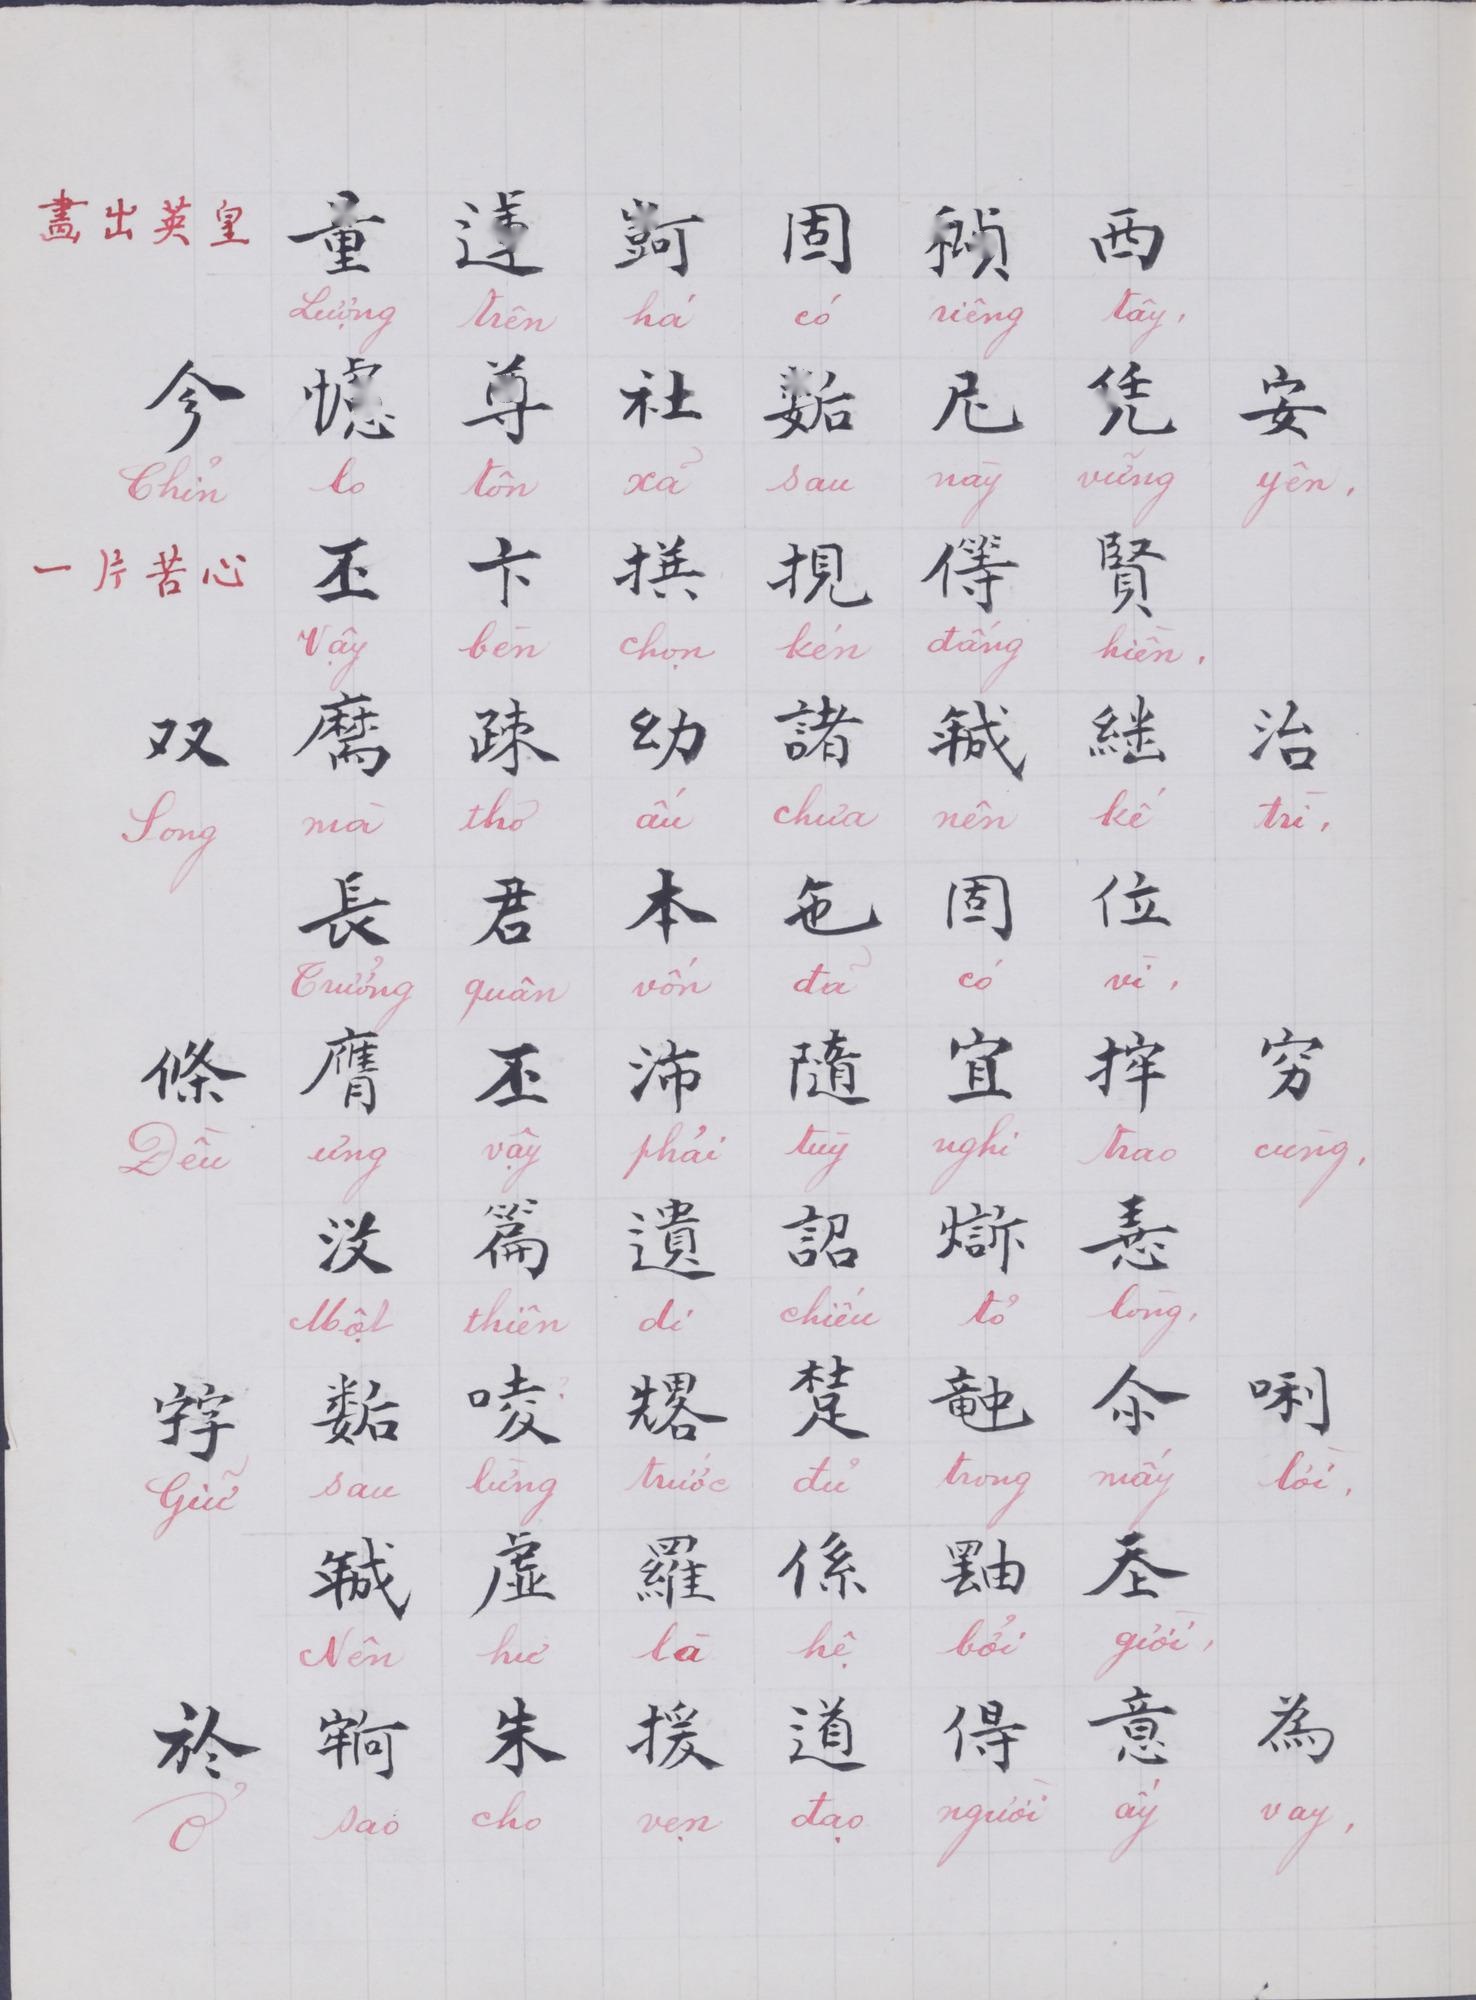 畫出英皇
量𨕭𱺵固𥢆西
Lượng trên há có riêng tây,
𠉞𢥈尊社𡢐尼凭安
Chỉn lo tôn xả sau này vững yên,
一片苦心
丕卞撰挸㒷賢
Vậy bèn chọn kén đấng hiền,
双麿疎幼諸𢧚継治
Song mà thơ ấu chưa nên kế trì,
長君本㐌固位
Trưởng quân vốn đả có vì,
條膺丕沛隨宜㨋穷
Đều ưng vậy phải tuỳ nghi trao cùng,
沒篇遺詔𤏣𢚸
Một thiên di chiếu tỏ lòng,
𡨺𡢐唛𠓀𨇜𥪝氽唎
Giữ sau lừng trước đủ trong mấy lời,
𢧚虛羅係𤳸𡗶
Nên hư là hệ bởi giời,
於𡨧朱援道得意為
Ở sao cho vẹn đạo người ấy vay,